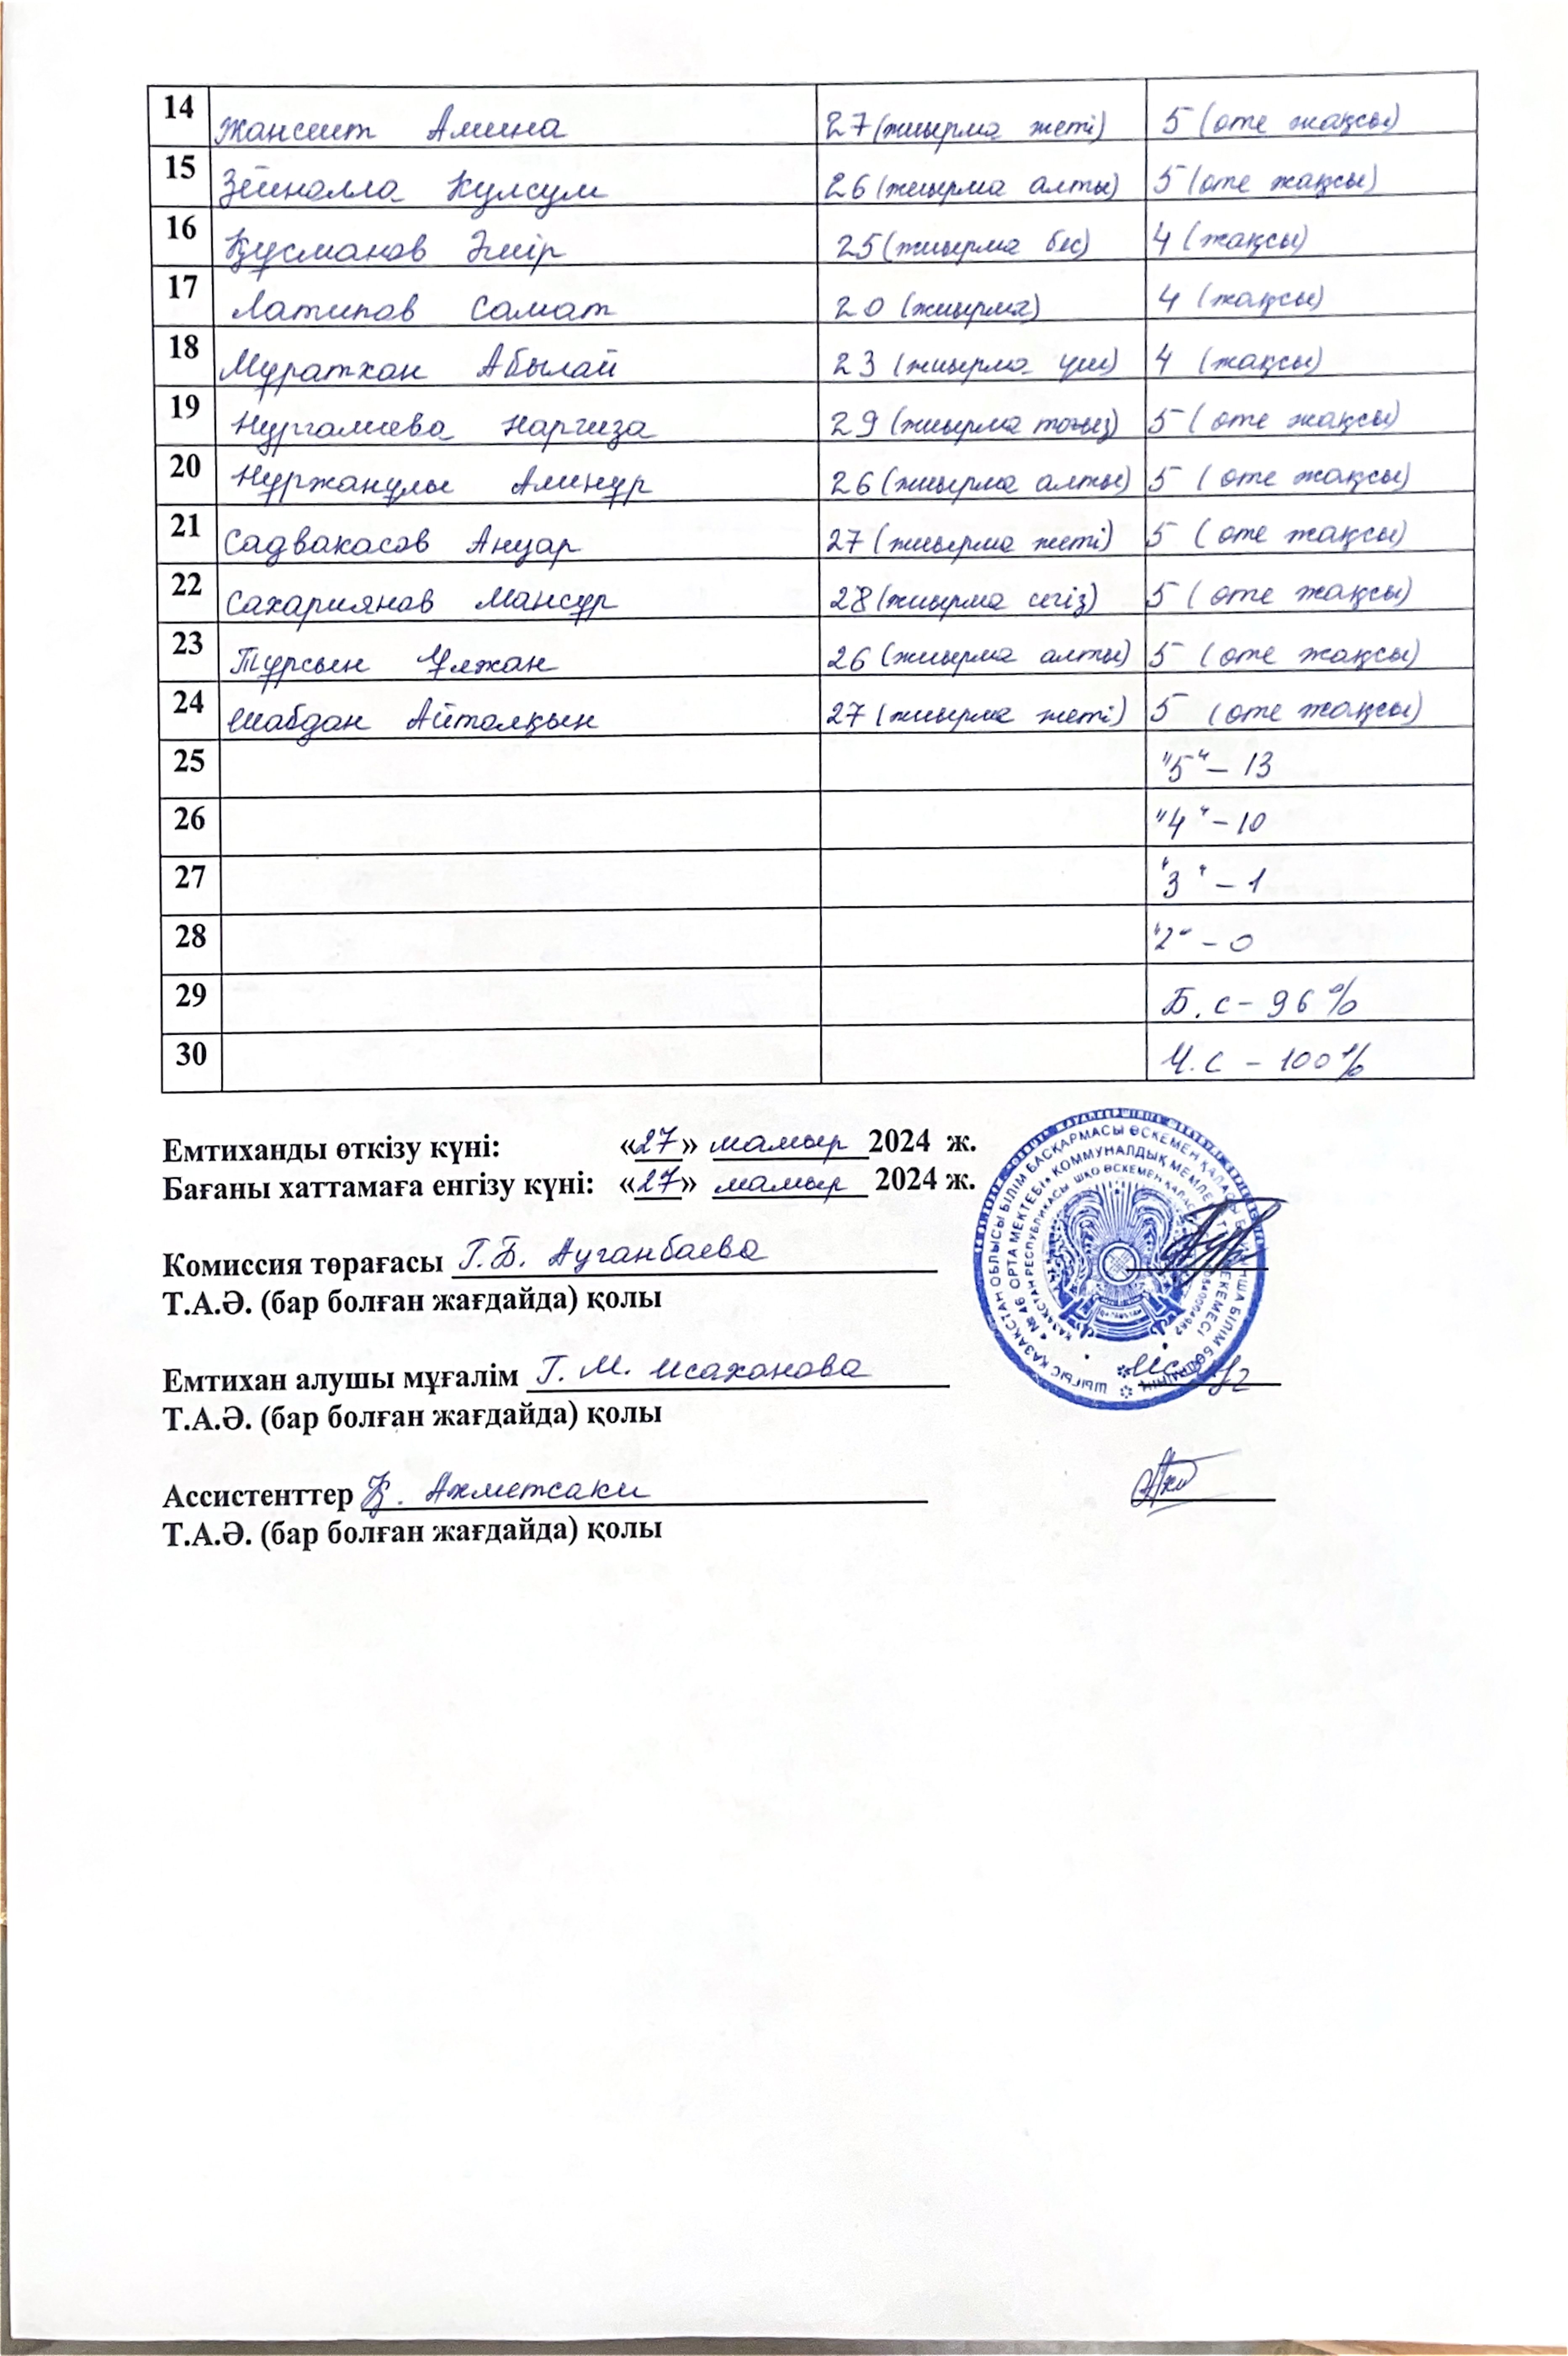 14 Жансеит Амина 27 (жиырма жеті) 5 (өте жақсы)
15 Зейналла Кулсум 26 (жиырма алты) 5 (өте жақсы)
16 Құсманов Әмір 25 (жиырма бес) 4 (жақсы)
17 Латипов Самат 20 (жиырма) 4 (жақсы)
18 Мұратхан Абылай 23 (жиырма үш) 4 (жақсы)
19 Нургалиева Наргиза 29 (жиырма тоғыз) 5 (өте жақсы)
20 Нұржанұлы Алинұр 26 (жиырма алты) 5 (өте жақсы)
21 Садвакасов Ануар 27 (жиырма жеті) 5 (өте жақсы)
22 Сахариянов Мансұр 28 (жиырма сегіз) 5 (өте жақсы)
23 Тұрсын Ұлжан 26 (жиырма алты) 5 (өте жақсы)
24 Шабдан Айтолқын 27 (жиырма жеті) 5 (өте жақсы)
25 "5" – 13
26 "4" – 10
27 "3" – 1
28 "2" – 0
29 Б.с – 96%
30 Ү.с – 100%
Емтиханды өткізу күні: «27» мамыр 2024 ж.
Бағаны хаттамаға енгізу күні: «27» мамыр 2024 ж.
Комиссия төрағасы Г.Б. Ауганбаева
Т.А.Ә. (бар болған жағдайда) қолы
Емтихан алушы мұғалім Г.М. Исаханова
Т.А.Ә. (бар болған жағдайда) қолы
Ассистенттер Қ. Ахметсаки
Т.А.Ә. (бар болған жағдайда) қолы
ШЫҒЫС ҚАЗАҚСТАН ОБЛЫСЫ БІЛІМ БАСҚАРМАСЫ ӨСКЕМЕН ҚАЛАСЫ БОЙЫНША БІЛІМ БӨЛІМІНІҢ
« № 46 ОРТА МЕКТЕБІ» КОММУНАЛДЫҚ МЕМЛЕКЕТТІК МЕКЕМЕСІ
ҚАЗАҚСТАН РЕСПУБЛИКАСЫ ШҚО ӨСКЕМЕН ҚАЛАСЫ